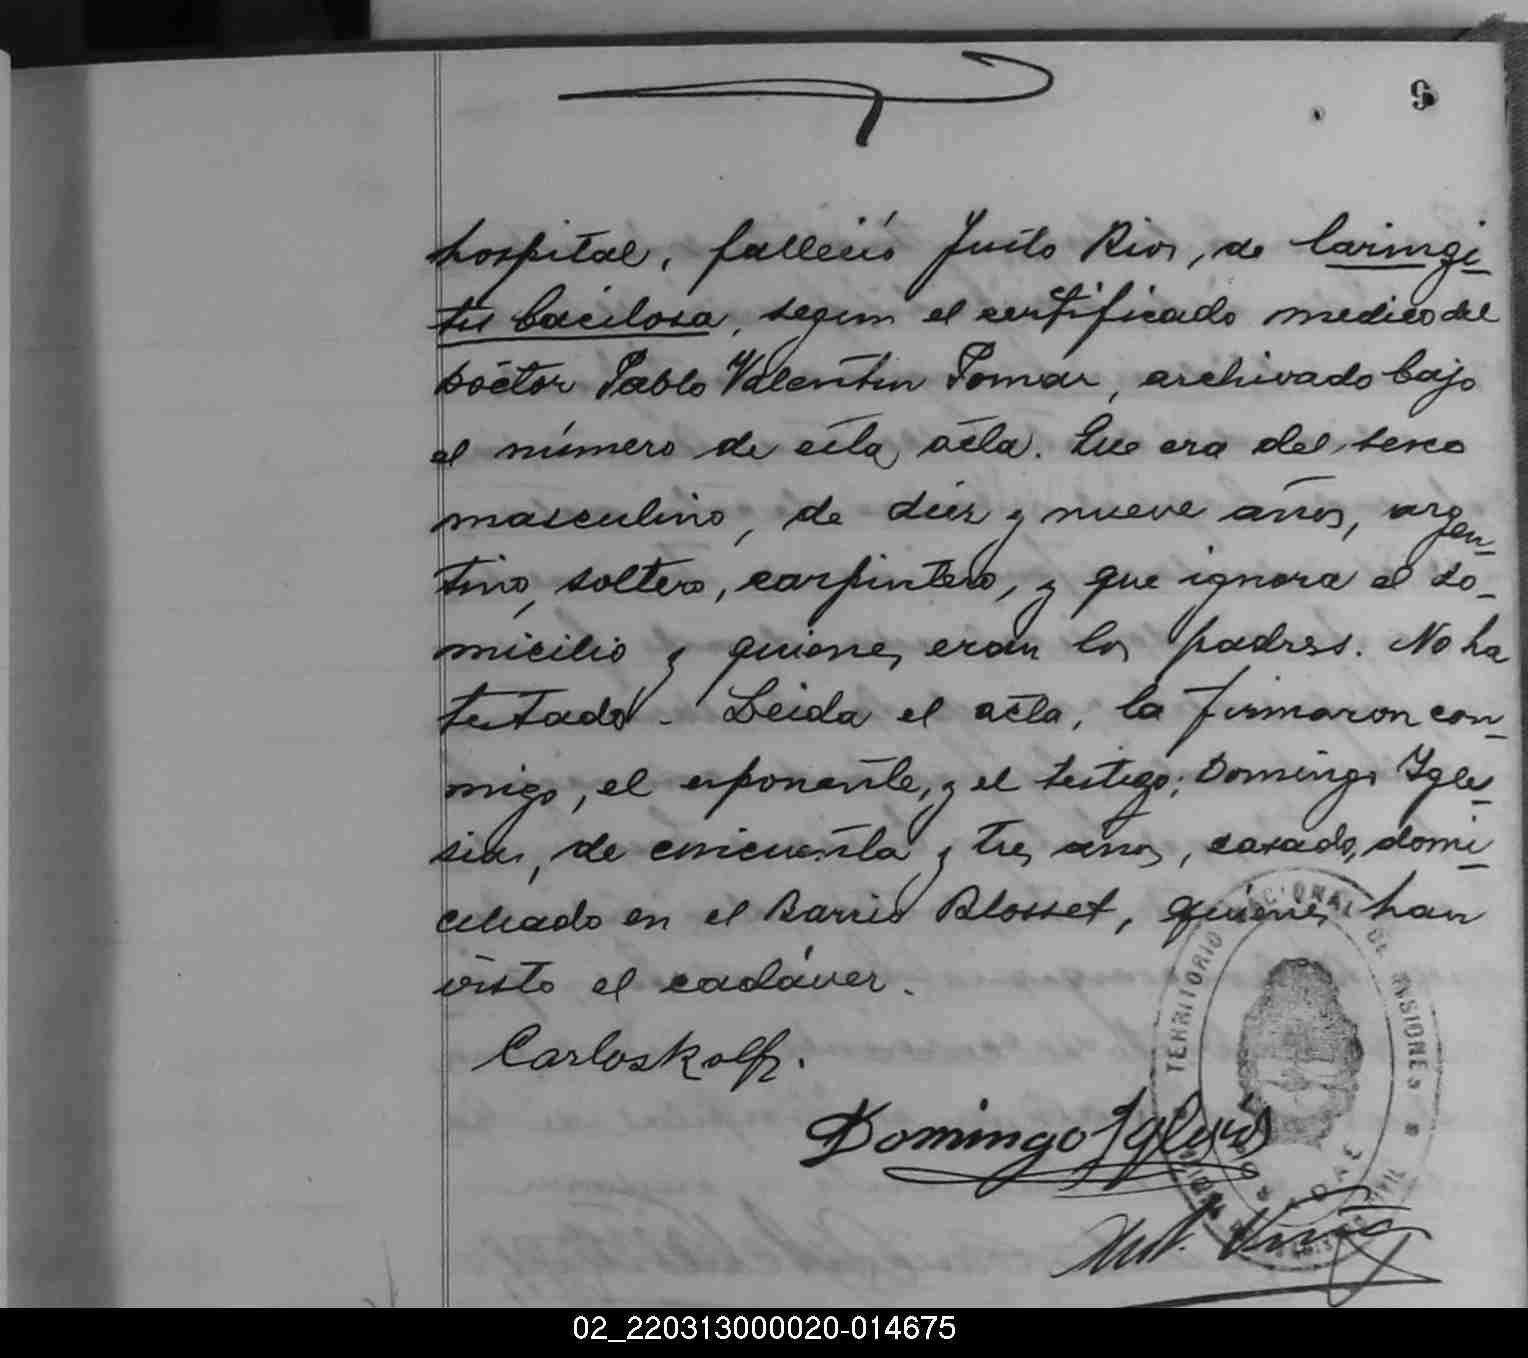 9
hospital, falleció Justo Rios, de laringi-
tis bacilosa, segun el certificado medico del
Doctor Pablo Valentin Pomar, archivado bajo
el número de esta acta. Que era del sexo
masculino, de diez y nueve años, argen-
tino, soltero, carpintero, y que ignora el do-
micilio y quienes eran los padres. No ha
testado. Leida el acta, la firmaron con-
migo, el exponente, y el testigo; Domingo Igle-
sias, de cincuenta y tres años, casado, domi-
ciliado en el Barrio Blosset, quienes han
visto el cadáver.
Carlos Kolf.
Domingo Iglesias
TERRITORIO NACIONAL DE MISIONES
02_220313000020-014675